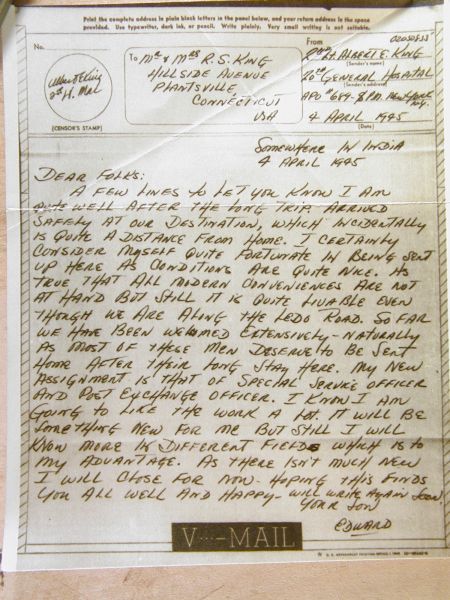 Print the complete address in plain block letters in the panel below, and your return address in the space
provided. Use typewriter, dark ink, or pencil. Write plainly. Very small writing is not suitable.
No.
Albert E King
2nd Lt. MAC
(CENSOR'S STAMP)
To Mr & Mrs R. S. KING
HILLSIDE AVENUE
PLANTSVILLE
CONNECTICUT
USA
From
2nd Lt. ALBERT E. KING
(Sender's name)
20th GENERAL HOSPITAL
(Sender's address)
APO #689- % P.M. NEW YORK
N.Y.
4 APRIL 1945
(Date)
SOMEWHERE IN INDIA
4 APRIL 1945
DEAR FOLKS:
A FEW LINES TO LET YOU KNOW I AM
WELL AFTER THE LONG TRIP. ARRIVED
SAFELY AT OUR DESTINATION, WHICH INCIDENTALLY
IS QUITE A DISTANCE FROM HOME. I CERTAINLY
CONSIDER MYSELF QUITE FORTUNATE IN BEING SENT
UP HERE AS CONDITIONS ARE QUITE NICE. ITS
TRUE THAT ALL MODERN CONVENIENCES ARE NOT
AT HAND BUT STILL IT IS QUITE LIVABLE EVEN
THOUGH WE ARE ALONG THE LEDO ROAD. SO FAR
WE HAVE BEEN WELCOMED EXTENSIVELY - NATURALLY
AS MOST OF THESE MEN DESERVE TO BE SENT
HOME AFTER THEIR LONG STAY HERE. MY NEW
ASSIGNMENT IS THAT OF SPECIAL SERVICE OFFICER
AND POST EXCHANGE OFFICER. I KNOW I AM
GOING TO LIKE THE WORK A LOT. IT WILL BE
SOMETHING NEW FOR ME BUT STILL I WILL
KNOW MORE IN DIFFERENT FIELDS WHICH IS TO
MY ADVANTAGE. AS THERE ISN'T MUCH NEW
I WILL CLOSE FOR NOW - HOPING THIS FINDS
YOU ALL WELL AND HAPPY - WILL WRITE AGAIN SOON.
YOUR SON
EDWARD
V···—MAIL